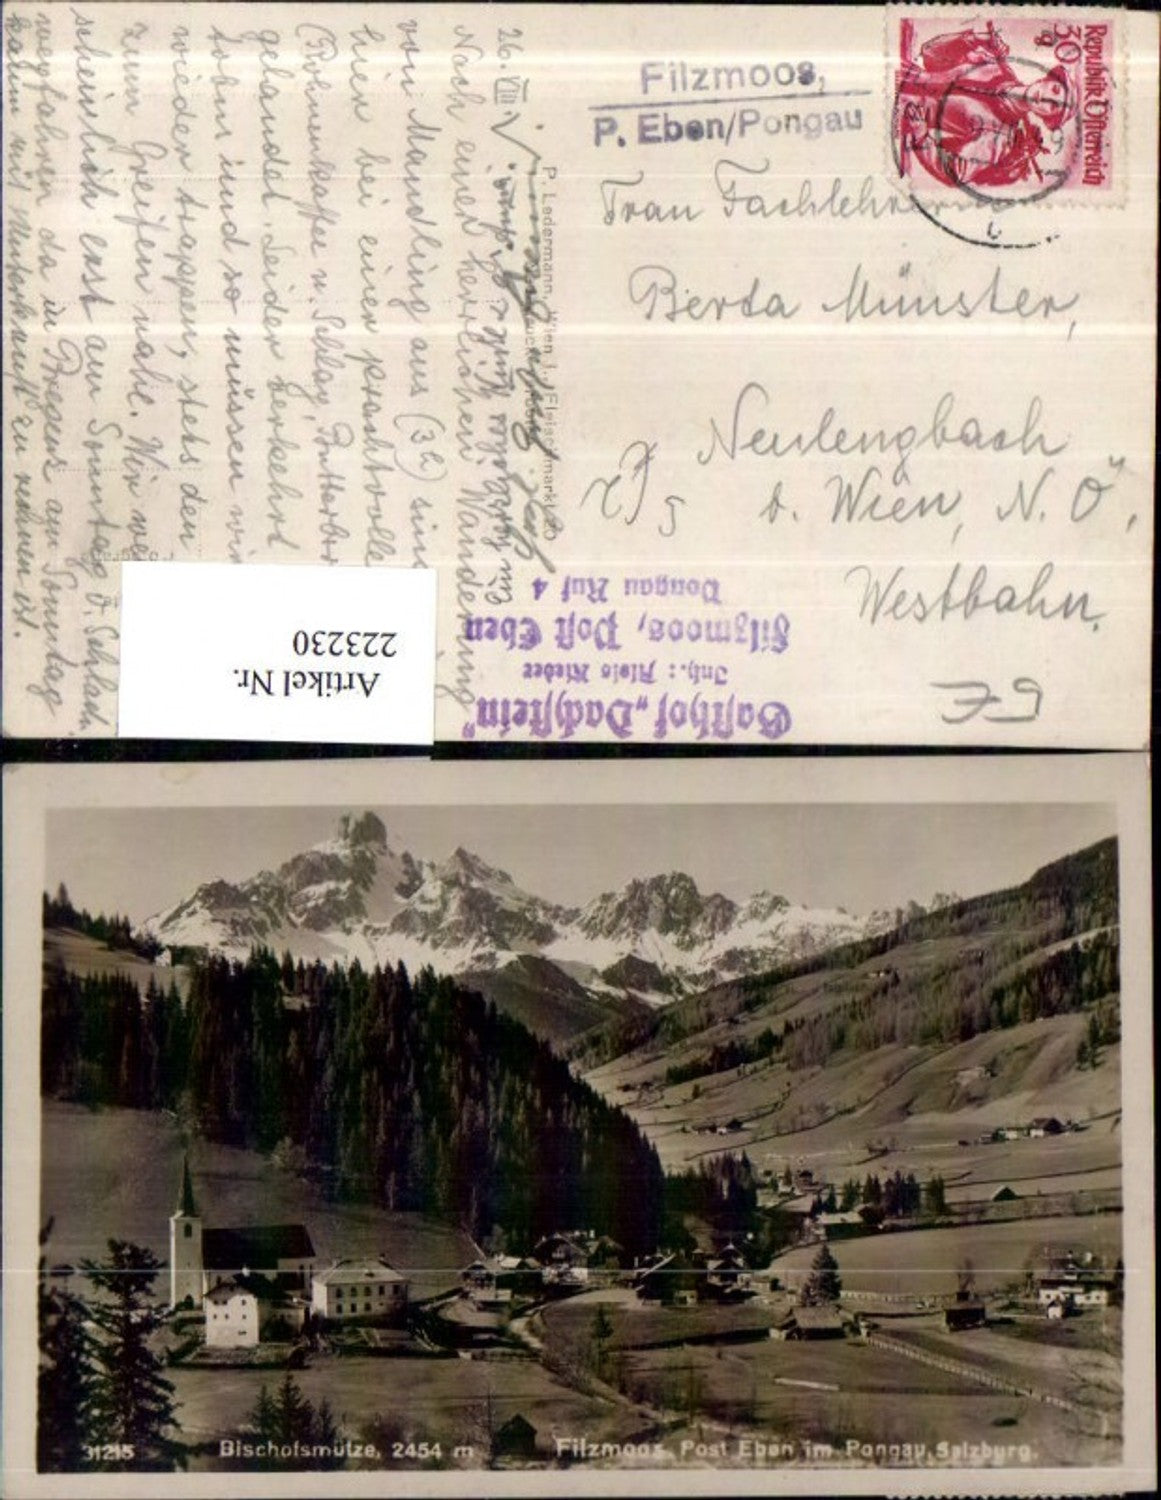 Filzmoos,
P. Eben/Pongau
Republik Österreich
30
Frau Fachlehrerin
Berta Münster,
Neulengbach
b. Wien, N. Ö.,
Westbahn.
26. VIII.
Nach einer herrlichen Wanderung
von Mandling aus (3 h) sind
hier bei einer prachtvollen
(Bohnenkaffee u. Schlag, Butterbrot
gelandet. Leider verkehrt
und so müssen wir
wieder trappen, stets den
zum Greifen nahe. Wir
scheinlich erst am Sonntag v. Schladm.
wegfahren, da in Bregenz am Sonntag
kaum mit Unterkunft zu rechnen ist.
P. Ledermann, Wien I., Fleischmarkt 20
Gasthof „Dachstein“
Inh.: Alois Rieder
Filzmoos, Post Eben
Pongau Ruf 4
Artikel Nr.
223230
31215
Bischofsmütze, 2454 m
Filzmoos, Post Eben im Pongau, Salzburg.